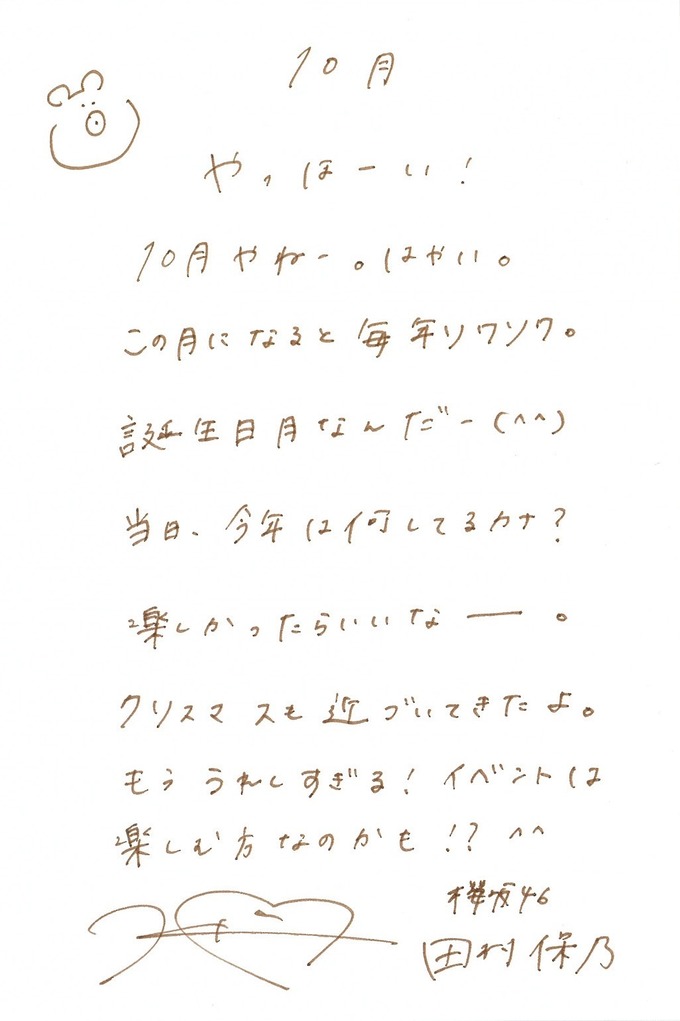 10月
やっほーい!
10月やねー。はやい。
この月になると毎年ソワソワ。
誕生日月なんだー(^^)
当日、今年は何してるカナ?
楽しかったらいいなー。
クリスマスも近づいてきたよ。
もううれしすぎる!イベントは
楽しむ方なのかも!?^^
櫻坂46
田村保乃